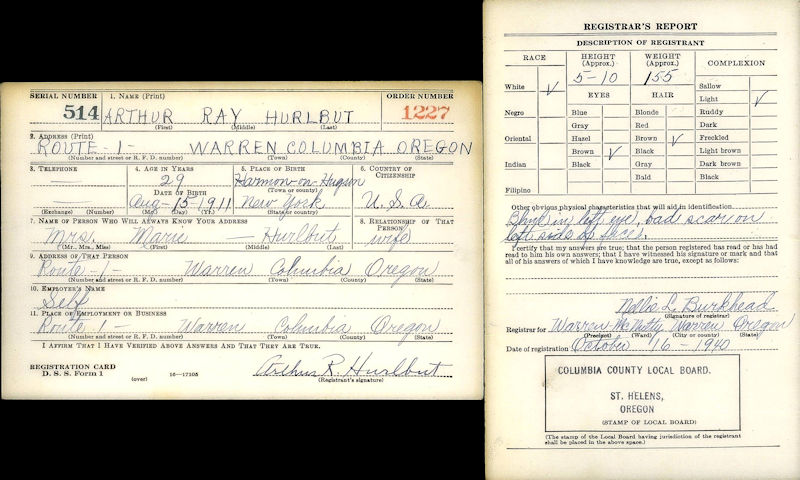 SERIAL NUMBER 1. NAME (Print) ORDER NUMBER
514 ARTHUR RAY HURLBUT 1227
(First) (Middle) (Last)
2. ADDRESS (Print)
ROUTE - 1 - WARREN COLUMBIA OREGON
(Number and street or R. F. D. number) (Town) (County) (State)
3. TELEPHONE 4. AGE IN YEARS 5. PLACE OF BIRTH 6. COUNTRY OF CITIZENSHIP
— 29 Harmon-on-Hugson
DATE OF BIRTH (Town or county)
— Aug-15-1911 New York U. S. A.
(Exchange) (Number) (Mo.) (Day) (Yr.) (State or country)
7. NAME OF PERSON WHO WILL ALWAYS KNOW YOUR ADDRESS 8. RELATIONSHIP OF THAT PERSON
Mrs. Marie — Hurlbut wife
(Mr., Mrs., Miss) (First) (Middle) (Last)
9. ADDRESS OF THAT PERSON
Route - 1 - Warren Columbia Oregon
(Number and street or R. F. D. number) (Town) (County) (State)
10. EMPLOYER'S NAME
Self
11. PLACE OF EMPLOYMENT OR BUSINESS
Route 1 - Warren Columbia Oregon
(Number and street or R. F. D. number) (Town) (County) (State)
I AFFIRM THAT I HAVE VERIFIED ABOVE ANSWERS AND THAT THEY ARE TRUE.
REGISTRATION CARD
D. S. S. Form 1 Arthur R. Hurlbut
(over) 16—17105 (Registrant's signature)
REGISTRAR'S REPORT
DESCRIPTION OF REGISTRANT
RACE HEIGHT (Approx.) WEIGHT (Approx.) COMPLEXION
5-10 155
White ✓ EYES HAIR Sallow
Light ✓
Negro Blue Blonde Ruddy
Gray Red Dark
Oriental Hazel Brown ✓ Freckled
Brown ✓ Black Light brown
Indian Black Gray Dark brown
Bald Black
Filipino
Other obvious physical characteristics that will aid in identification
Blind in left eye, bad scar on
left side of face.
I certify that my answers are true; that the person registered has read or has had
read to him his own answers; that I have witnessed his signature or mark and that
all of his answers of which I have knowledge are true, except as follows:
Nellie L. Burkhead
(Signature of registrar)
Registrar for Warren-McNulty Warren Oregon
(Precinct) (Ward) (City or county) (State)
Date of registration October 16 - 1940
COLUMBIA COUNTY LOCAL BOARD.
ST. HELENS,
OREGON
(STAMP OF LOCAL BOARD)
(The stamp of the Local Board having jurisdiction of the registrant
shall be placed in the above space.)